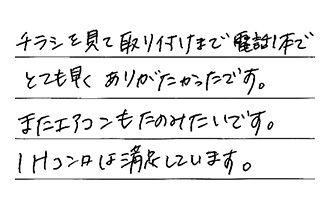 チラシを見て取り付けまで電話1本で
とても早くありがたかったです。
またエアコンもたのみたいです。
IHコンロは満足しています。